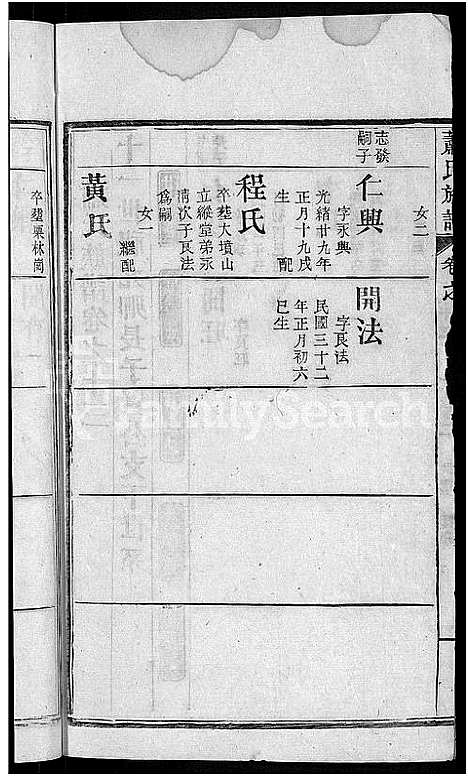 氏族譜
卷之
女二
志發
嗣子
仁興
字永興
光緒廿九年
正月十九戌
生
配
程氏
卒塟大墳山
立縱堂弟永
清次子良法
爲嗣
女一
繼配
黃氏
開法
字良法
民國三十二
年正月初六
巳生
卒塟栗林崗
FamilySearch